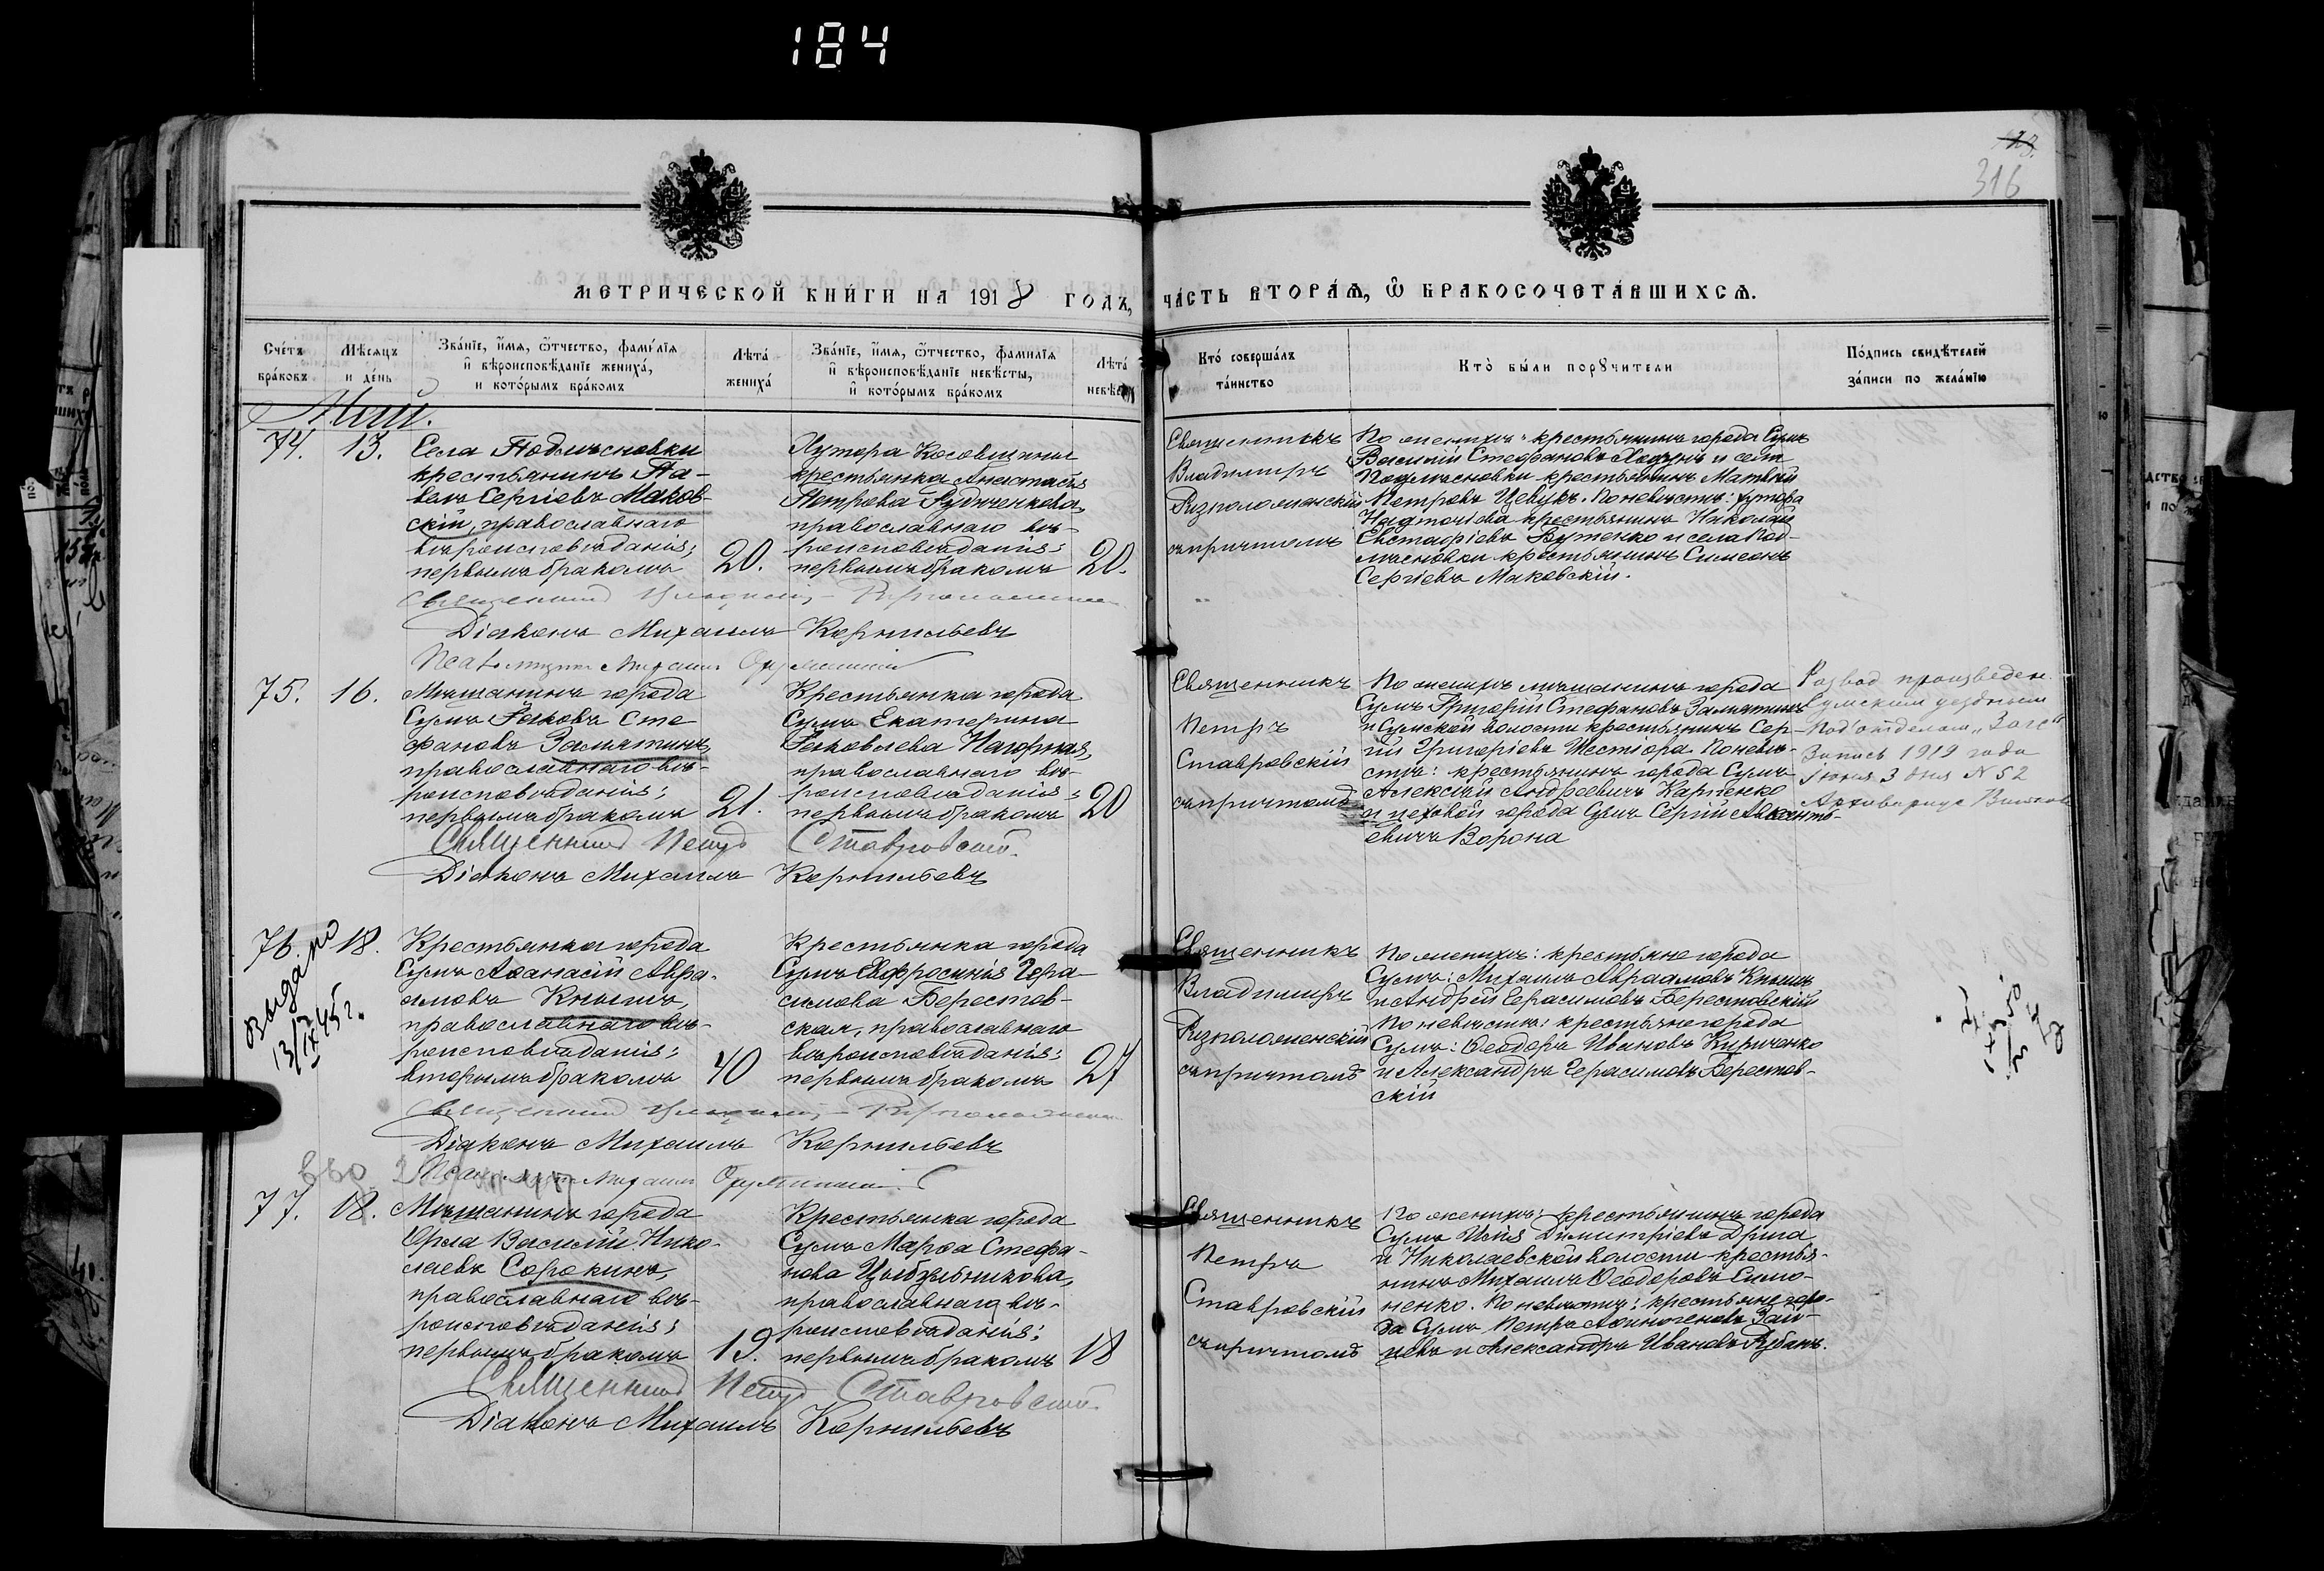 184
123.
316
МЕТРИЧЕСКОЙ КНИ́ГИ НА 1918 ГОДЪ, ЧА́СТЬ ВТОРА́Ѧ, Ѽ БРАКОСОЧЕТА́ВШИХСѦ.
Сче́тъ бра́ковъ
Мѣ́сяцъ и де́нь
Зва́нїе, и҆́мѧ, ѻ҆́тчество, фами́лїѧ и҆ вѣроисповѣ́данїе жениха̀, и кото́рымъ бра́комъ
Лѣта̀ жениха̀
Зва́нїе, и҆́мѧ, ѻ҆́тчество, фами́лїѧ и҆ вѣроисповѣ́данїе невѣ́сты, и҆ кото́рымъ бра́комъ
Лѣта̀
Кто̀ соверша́лъ та́инство
Кто̀ бы́ли порꙋчи́тели
По́дпись свидѣ́телей за́писи по жела́нїю
Май.
74. 13.
Села Подлѣсновки
крестьянинъ Па-
велъ Сергіевъ Маков-
скій, православнаго
вѣроисповѣданія;
первымъ бракомъ 20.
Хутора Косовщины
крестьянка Анастасія
Петрова Рудиченкова,
православнаго вѣ-
роисповѣданія;
первымъ бракомъ 20.
Священникъ
Владимиръ
Ризположенскій
съ причтомъ
По женихѣ: крестьянинъ города Сумъ
Василій Стефановъ и села
Подлѣсновки крестьянинъ Матвѣй
Петровъ Цевукъ. По невѣстѣ: хутора
Надточіева крестьянинъ Николай
Евстафіевъ Бутенко и села Под-
лѣсновки крестьянинъ Симеонъ
Сергіевъ Маковскій.
Священник Владимир Ризположенский
Діаконъ Михаилъ Корнильевъ
Псаломщик Михаил
75. 16.
Мѣщанинъ города
Сумъ Іаковъ Сте
фановъ Замятинъ,
православнаго вѣ-
роисповѣданія;
первымъ бракомъ 21.
Крестьянка города
Сумъ Екатерина
Іаковлева Нагорная,
православнаго вѣ-
роисповѣданія;
первымъ бракомъ 20
Священникъ
Петръ
Ставровскій
съ причтомъ
По женихѣ мѣщанинъ города
Сумъ Григорій Стефановъ Замятинъ
и Сумской волости крестьянинъ Сер-
гій Григоріевъ Шестіора. По невѣ-
стѣ: крестьянинъ города Сумъ
Алексѣй Андреевичъ Карпенко
и цеховой города Сумъ Сергій Авксентъ-
евичъ Ворона
Развод произведен
Сумским уездным
Под'отделом „Загс"
Запись 1919 года
Июня 3 дня N 52
Архивариус
Священник Петр Ставровский
Діаконъ Михаилъ Корнильевъ
76. 18.
выдано
13/IX 45 г.
Крестьянинъ города
Сумъ Аѳанасій Авра-
амовъ Кнышъ,
православнаго вѣ-
роисповѣданія;
вторымъ бракомъ 40
Крестьянка города
Сумъ Евфросинія Гера-
симова Берестов-
ская, православнаго
вѣроисповѣданія;
первымъ бракомъ 27
Священникъ
Владимиръ
Ризположенскій
съ причтомъ
По женихѣ: крестьяне города
Сумъ: Михаилъ Авраамовъ Кнышъ
и Андрей Герасимовъ Берестовскій
По невѣстѣ: крестьяне города
Сумъ: Ѳеодоръ Ивановъ Кириченко
и Александръ Герасимовъ Берестов-
скій
Священник Владимир Ризположенский
Діаконъ Михаилъ Корнильевъ
Псаломщик Михаил
77. 18.
Мѣщанинъ города
Орла Василій Нико-
лаевъ Сорокинъ,
православнаго вѣ-
роисповѣданія;
первымъ бракомъ 19.
Крестьянка города
Сумъ Марѳа Стефа-
нова Цыбульникова,
православнаго вѣ-
роисповѣданія;
первымъ бракомъ 18
Священникъ
Петръ
Ставровскій
съ причтомъ
По женихѣ: крестьянинъ города
Сумъ Илія Димитріевъ Дріга
и Николаевской волости крестья-
нинъ Михаилъ Ѳеодоровъ Симо-
ненко. По невѣстѣ: крестьяне горо-
да Сумъ Петръ Аѳиногеновъ Зай-
цевъ и Александръ Ивановъ Рубанъ.
Священник Петр Ставровский
Діаконъ Михаилъ Корнильевъ